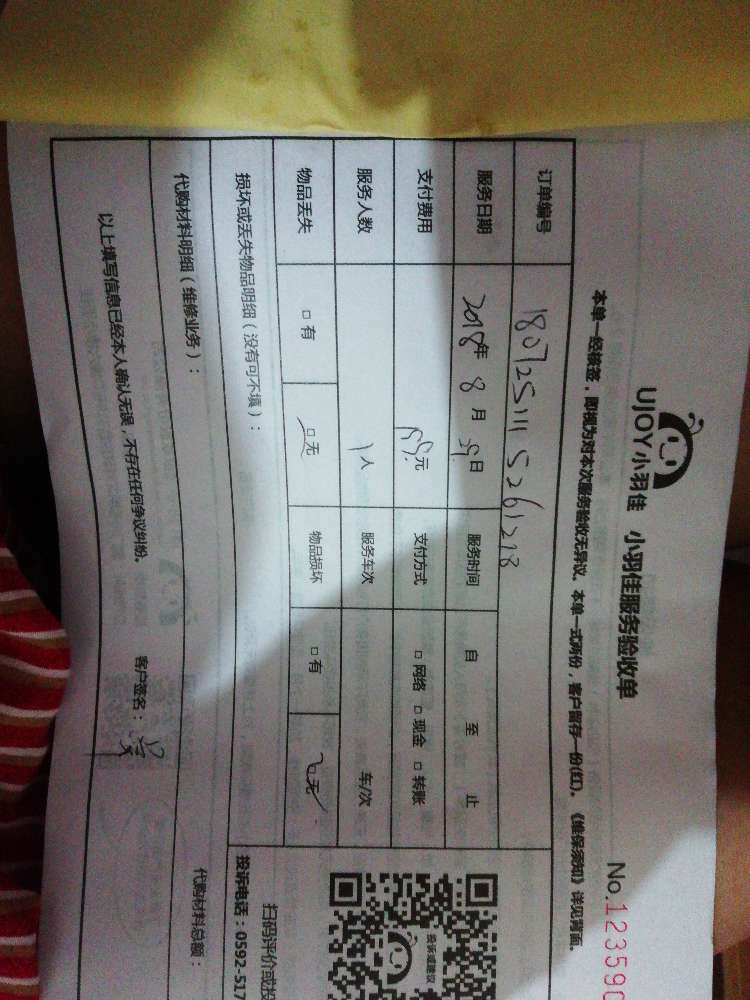 UJOY小羽佳 小羽佳服务验收单
No.123590
本单一经核签，即视为对本次服务验收无异议、本单一式两份，客户留存一份(红)。《维保须知》详见背面。
订单编号 1807251115261218
服务日期 2018年 8月 日 服务时间 自 至 止
支付费用 元 支付方式 □ 网络 □ 现金 □ 转账
服务人数 1人 服务车次 车/次
物品丢失 □ 有 □ 无 物品损坏 □ 有 □ 无
损坏或丢失物品明细（没有可不填）：
代购材料明细（维修业务）： 代购材料总额：
以上填写信息已经本人确认无误，不存在任何争议纠纷。 客户签名：
投诉或建议
扫码评价或投
投诉电话：0592-517